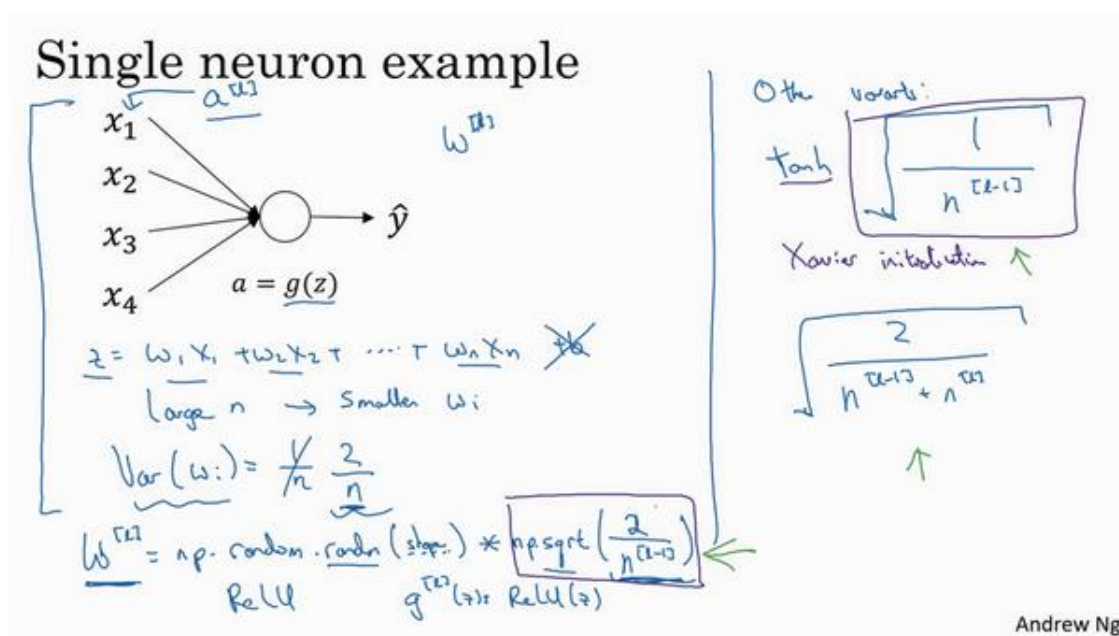 Single neuron example
a^[l]
x₁
w^[l]
x₂
x₃
x₄
ŷ
a = g(z)
z = w₁x₁ + w₂x₂ + ⋯ + wₙxₙ +b
large n → Smaller wᵢ
Var(wᵢ) = 1/n 2/n
W^[l] = np.random.randn(shape) * np.sqrt(2/n^[l-1])
ReLU g^[l](z) = ReLU(z)
Other variants:
tanh √(1/n^[l-1])
Xavier initialization
√(2/(n^[l-1] + n^[l]))
Andrew Ng